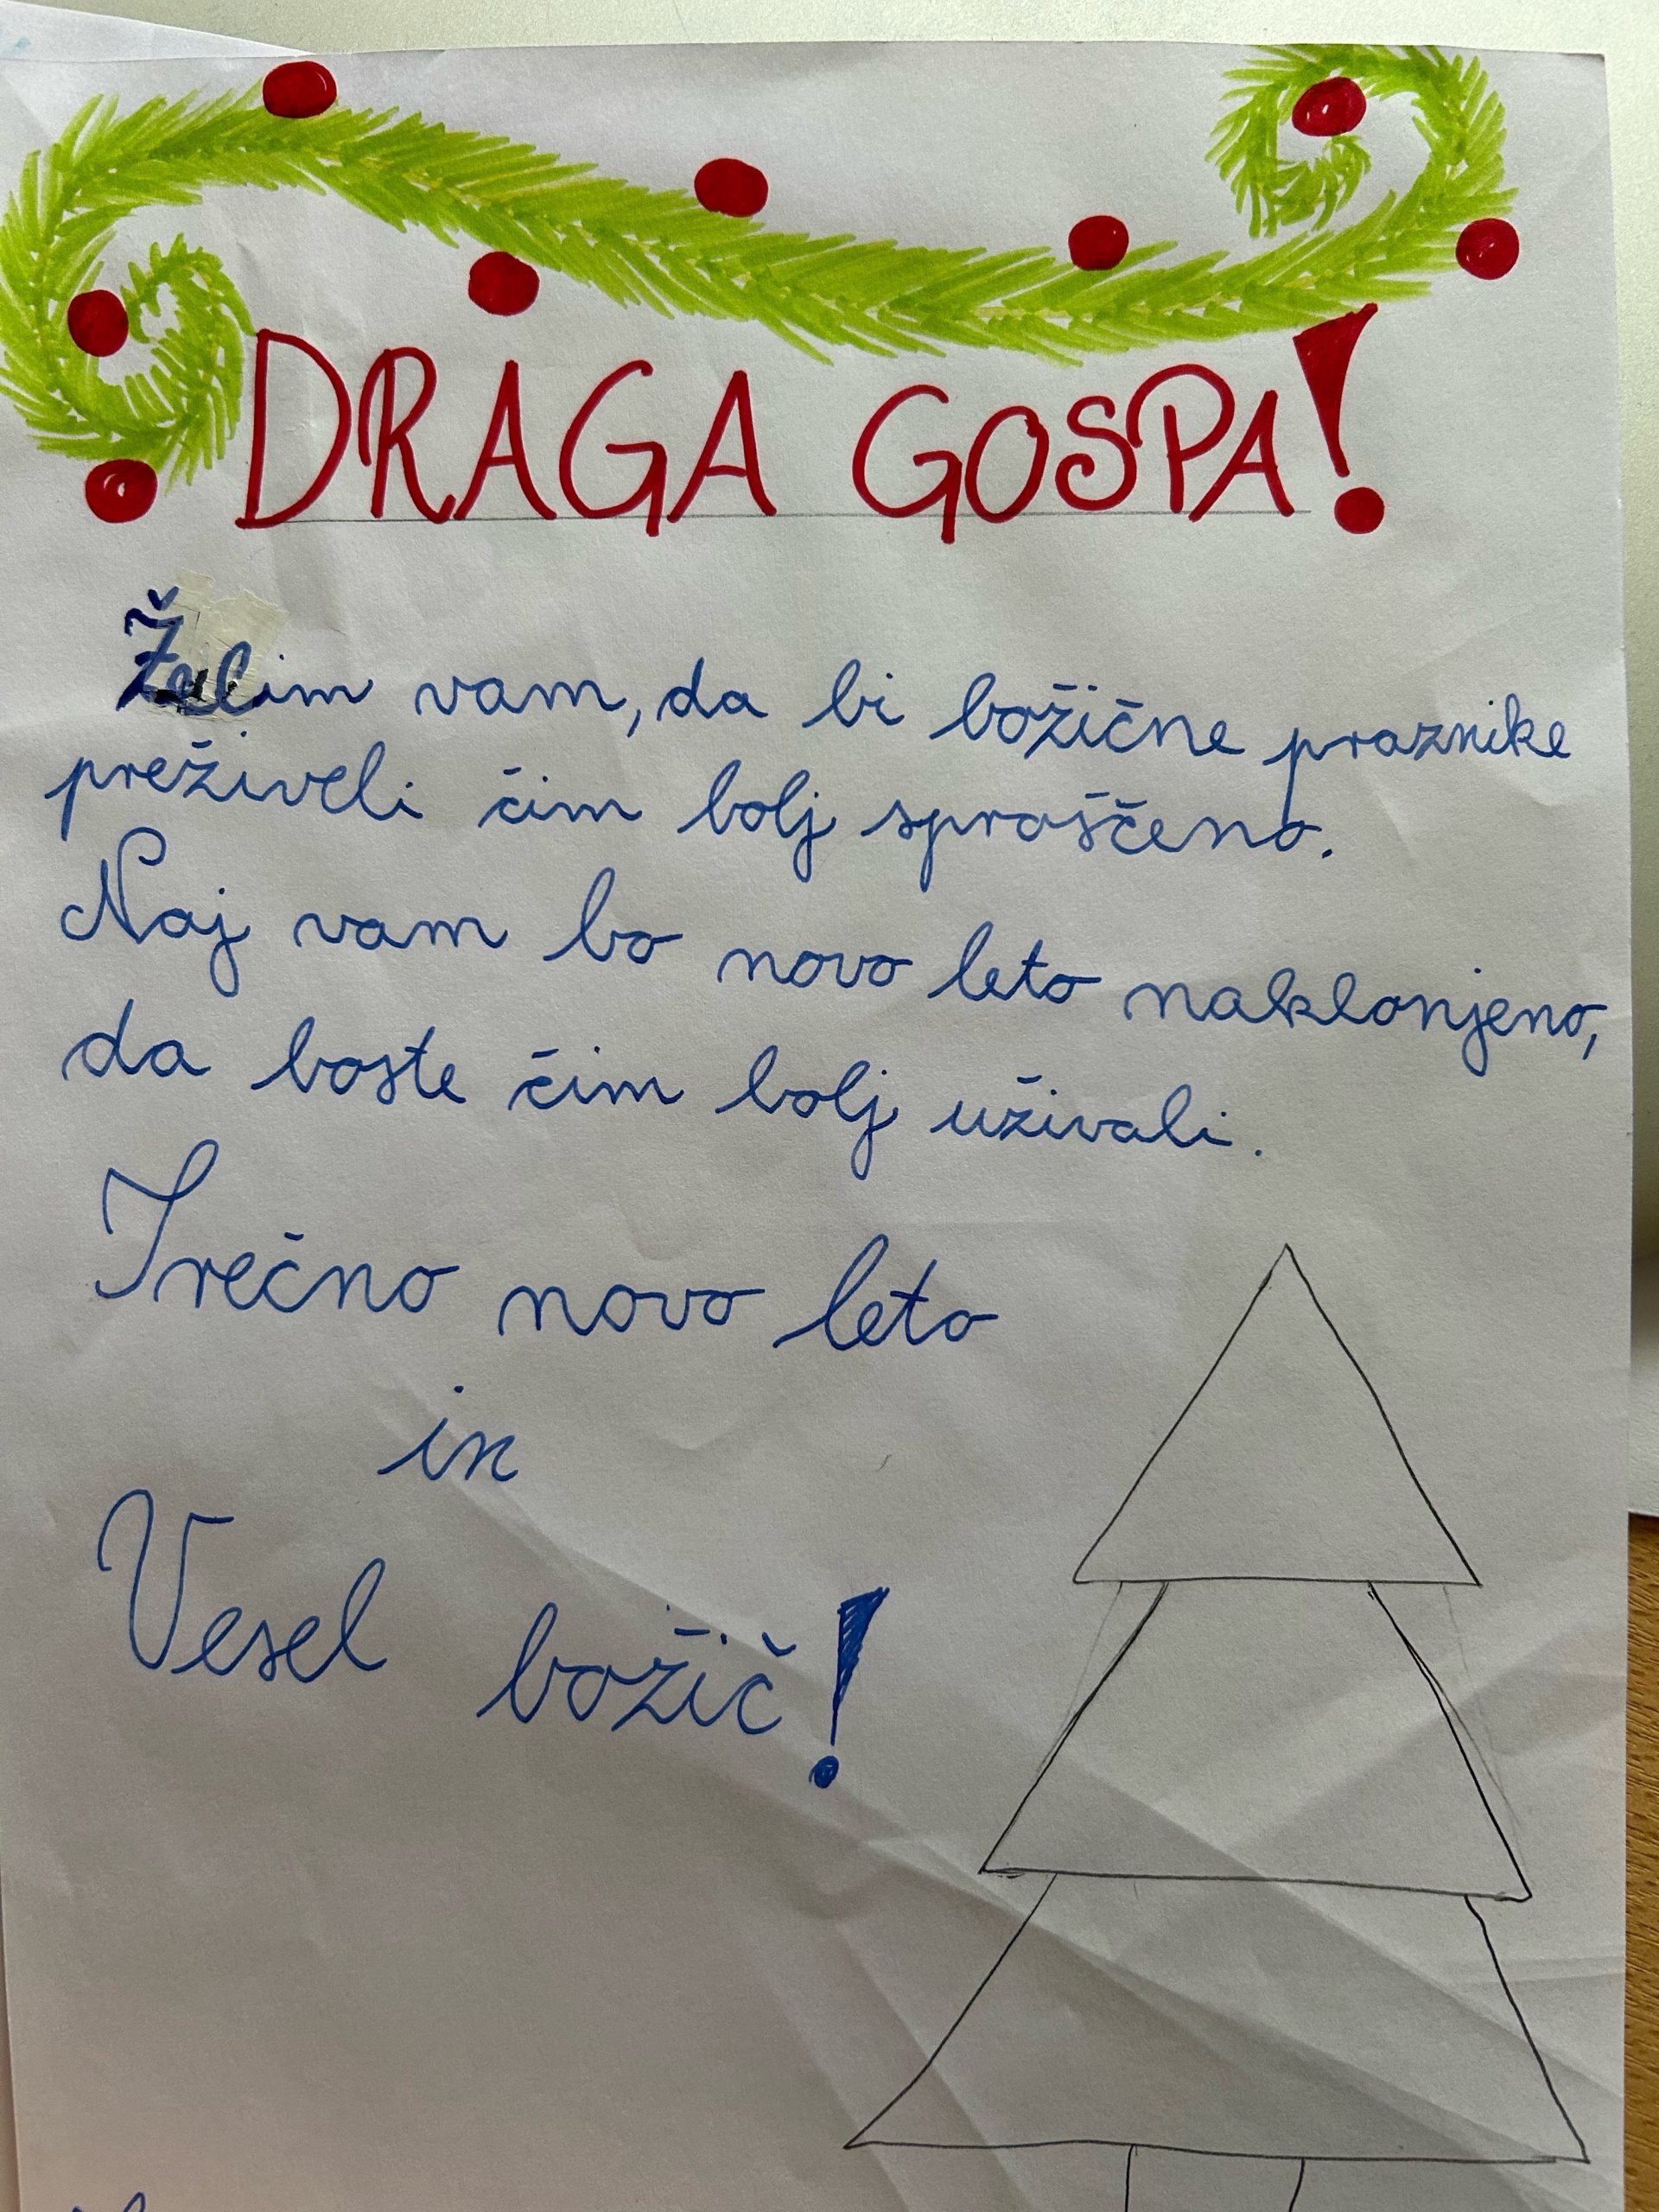 DRAGA GOSPA!
Želim vam, da bi božične praznike
preživeli čim bolj sproščeno.
Naj vam bo novo leto naklonjeno,
da boste čim bolj uživali.
Srečno novo leto
in
Vesel božič!